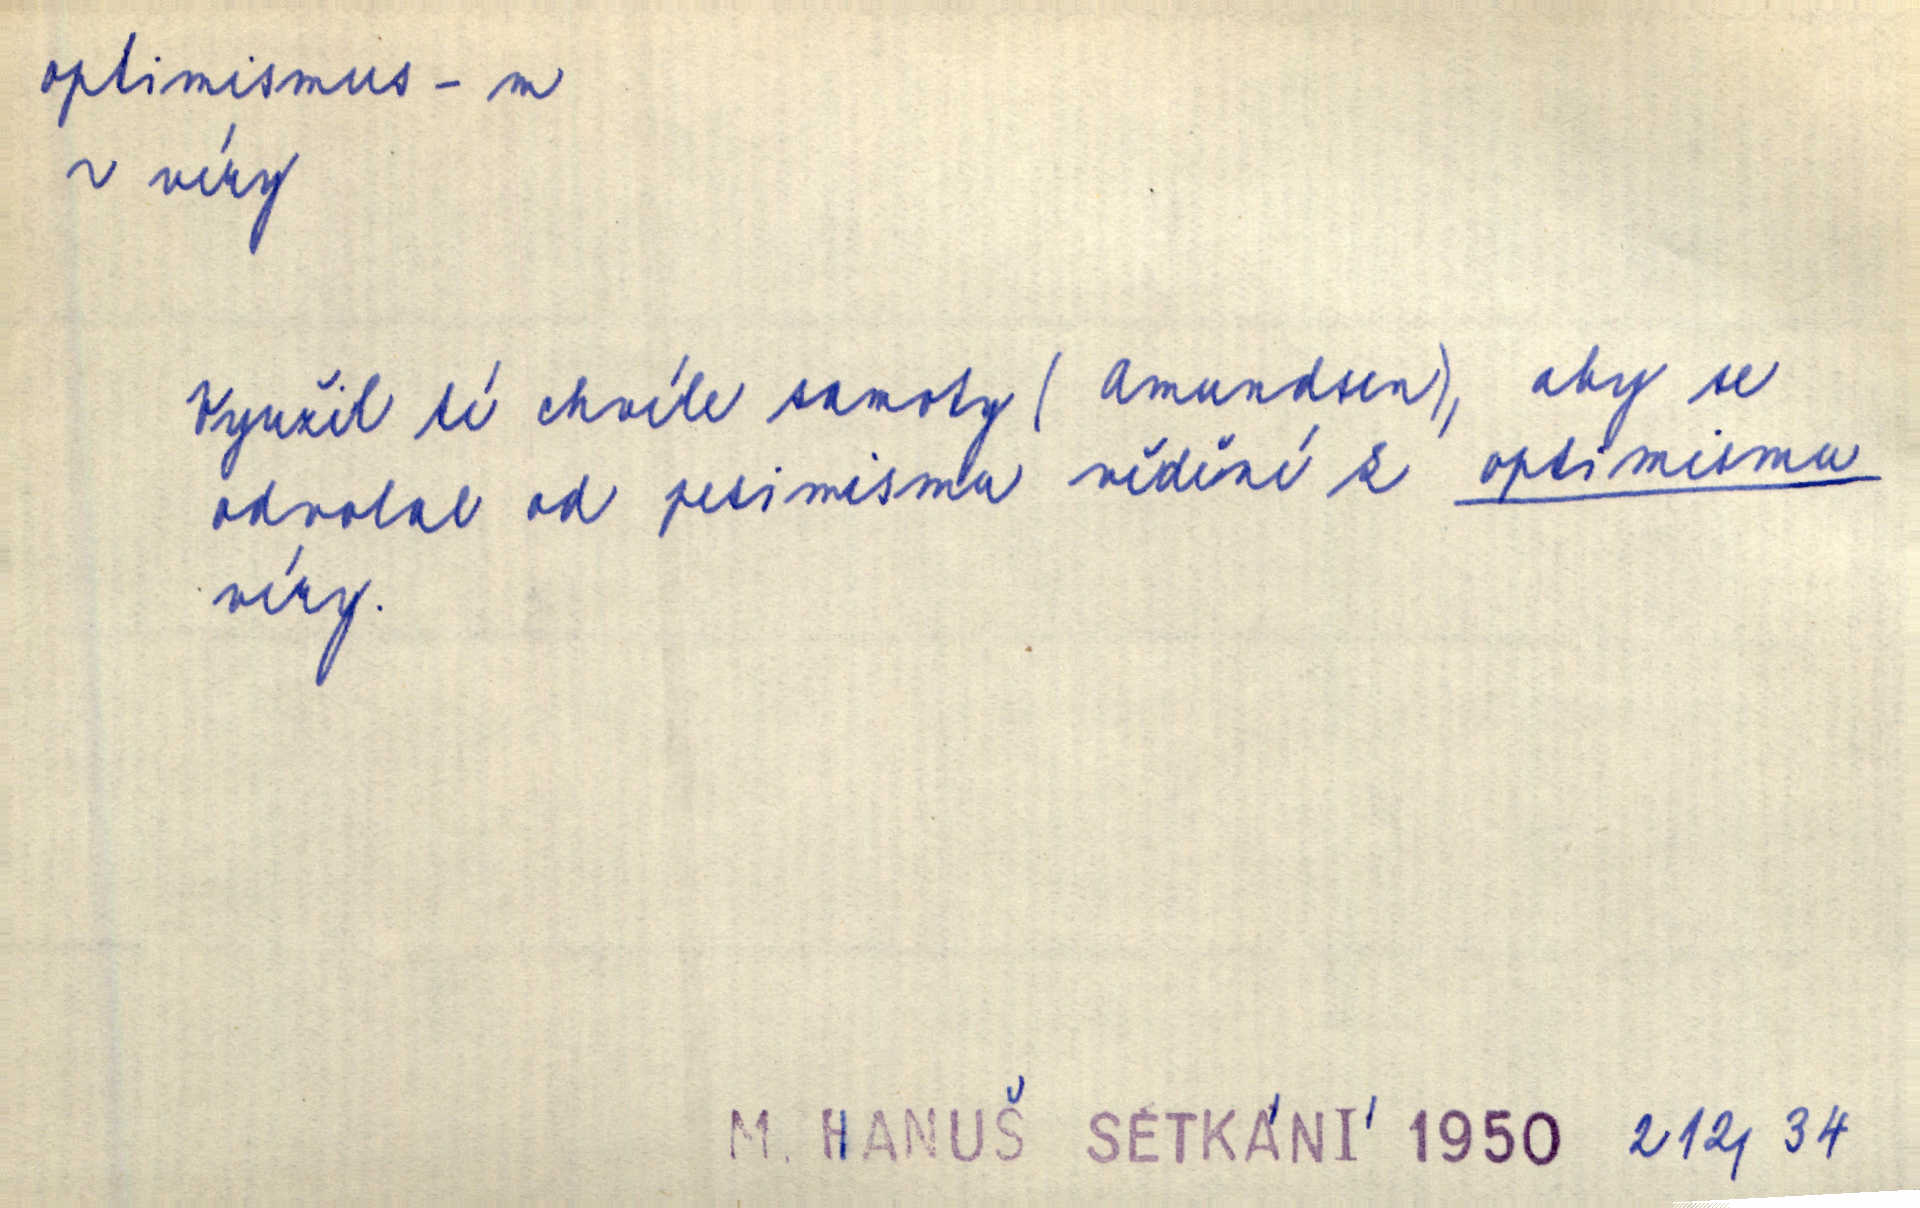 optimismus - m
~ víry
Využil té chvíle samoty (Amundsen), aby se
odvolal od pesimismu vědění k optimismu
víry.
M. HANUŠ SETKÁNÍ 1950 212, 34